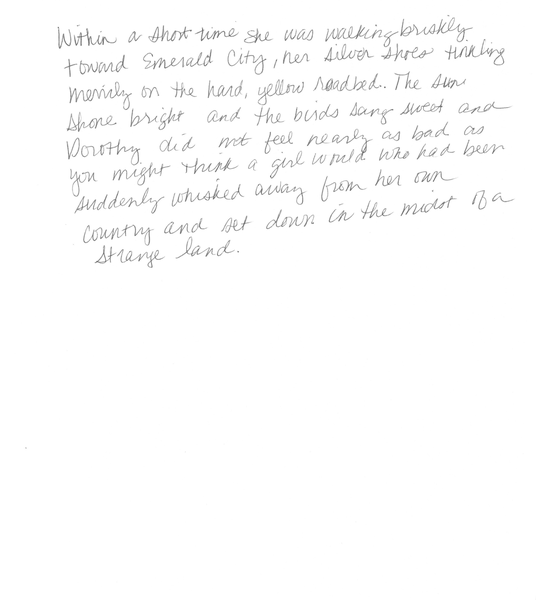 Within a short time she was walking briskly
toward Emerald City, her silver shoes tinkling
merrily on the hard, yellow roadbed. The sun
shone bright and the birds sang sweet and
Dorothy did not feel nearly as bad as
you might think a girl would who had been
suddenly whisked away from her own
country and set down in the midst of a
strange land.